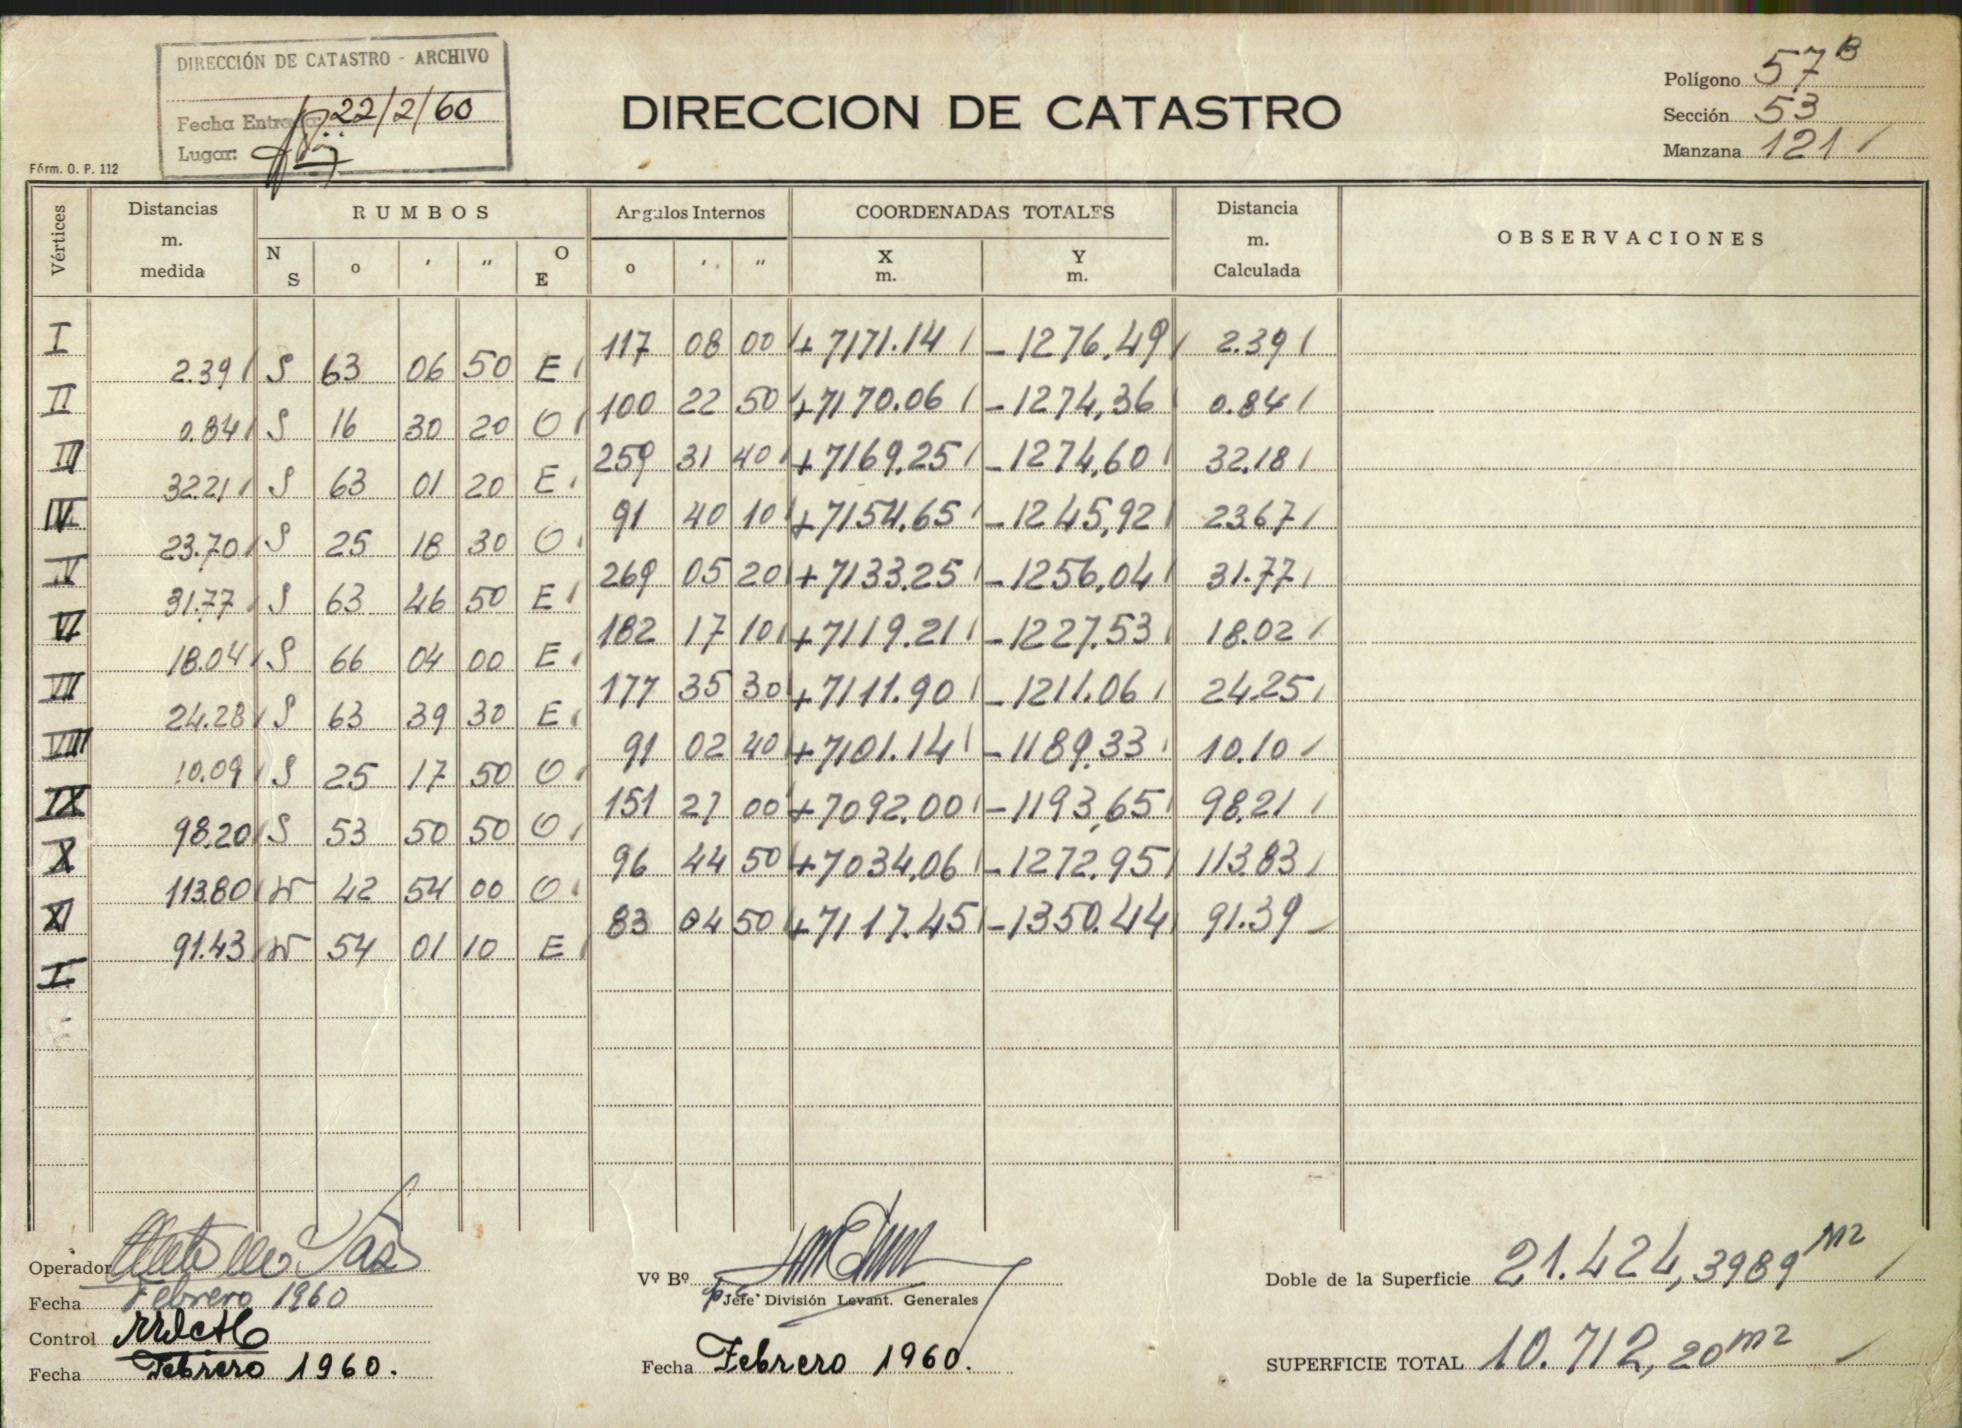 DIRECCIÓN DE CATASTRO - ARCHIVO
Fecha Entrada: 22/2/60
Lugar:
Fórm. O. P. 112
DIRECCION DE CATASTRO
Polígono 57B
Sección 53
Manzana 121
Vértices Distancias m. medida RUMBOS Angulos Internos COORDENADAS TOTALES Distancia m. Calculada OBSERVACIONES
N S o ' " O E o ' " X m. Y m.
I 117 08 00 +7171.14 -1276,49 2.39
2.39 S 63 06 50 E
II 100 22 50 +7170.06 -1274,36 0.84
0.84 S 16 30 20 O
III 259 31 40 +7169.25 -1274,60 32.18
32.21 S 63 01 20 E
IV 91 40 10 +7154.65 -1245,92 23.67
23.70 S 25 18 30 O
V 269 05 20 +7133.25 -1256,04 31.77
31.77 S 63 46 50 E
VI 182 17 10 +7119.21 -1227.53 18.02
18.04 S 66 04 00 E
VII 177 35 30 +7111.90 -1211.06 24.25
24.28 S 63 39 30 E
VIII 91 02 40 +7101.14 -1189.33 10.10
10.09 S 25 17 50 O
IX 151 27 00 +7092.00 -1193,65 98.21
98.20 S 53 50 50 O
X 96 44 50 +7034.06 -1272.95 113.83
113.80 N 42 54 00 O
XI 83 04 50 +7117.45 -1350.44 91.39
91.43 N 54 01 10 E
I
Operador
Fecha Febrero 1960
Control
Fecha Febrero 1960.
Vº Bº
Jefe División Levant. Generales
Fecha Febrero 1960.
Doble de la Superficie 21.424,3989 m2
SUPERFICIE TOTAL 10.712,20 m2